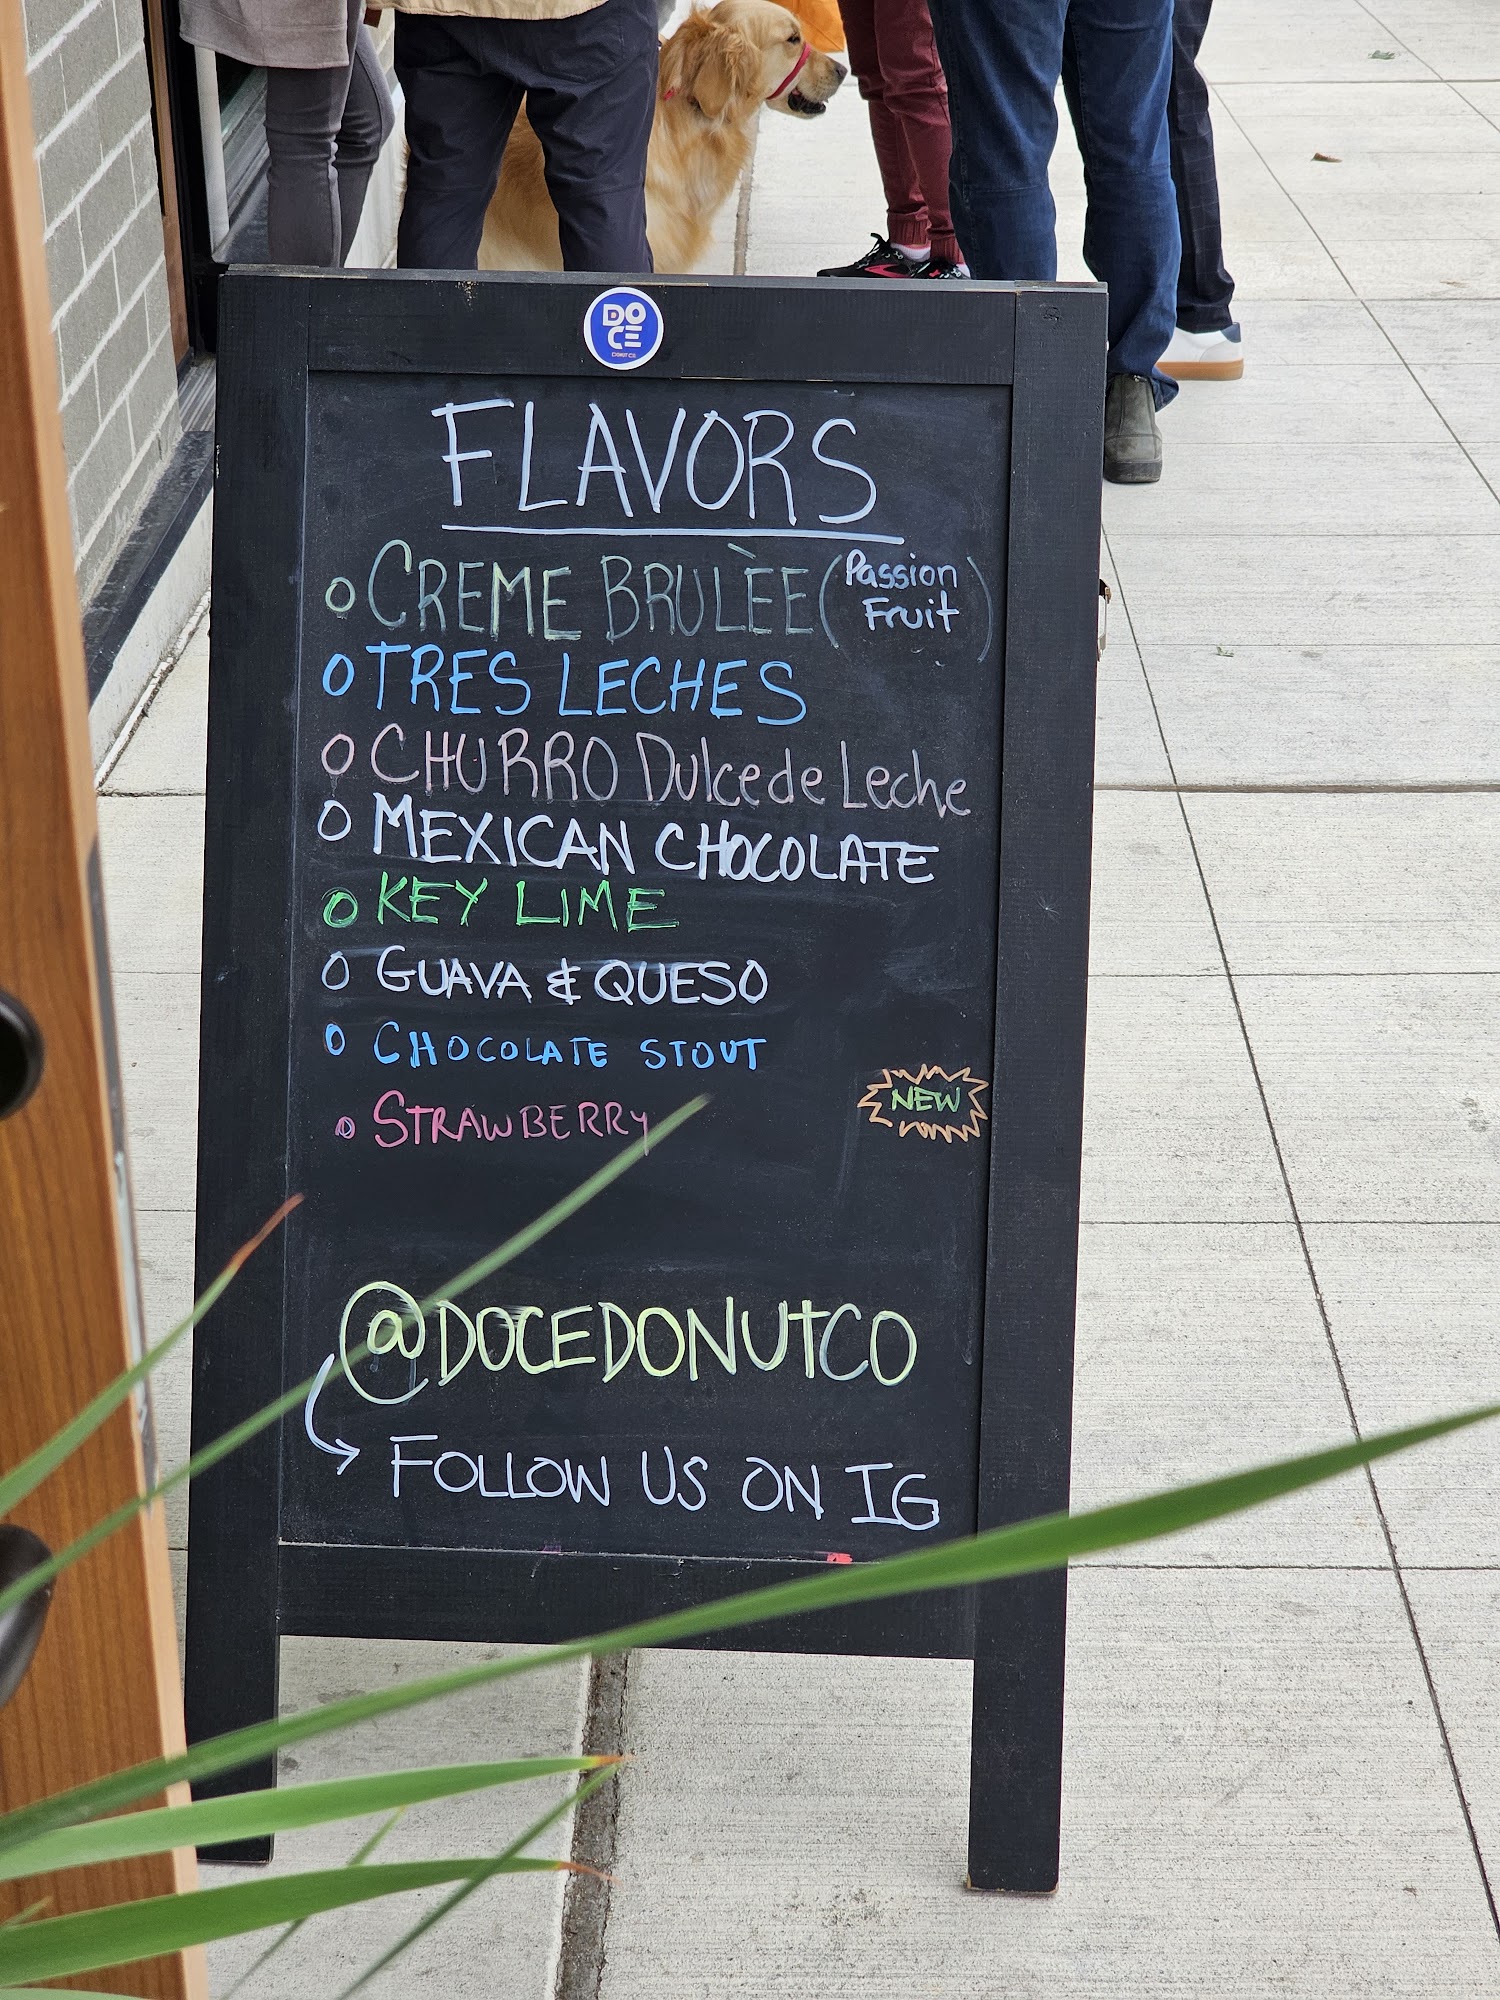 DO
CE
DONUT CO.
FLAVORS
o CREME BRULÈE (Passion Fruit)
o TRES LECHES
o CHURRO Dulce de Leche
o MEXICAN CHOCOLATE
o KEY LIME
o GUAVA & QUESO
o CHOCOLATE STOUT
o STRAWBERRY
NEW
@DOCEDONUTCO
FOLLOW US ON IG